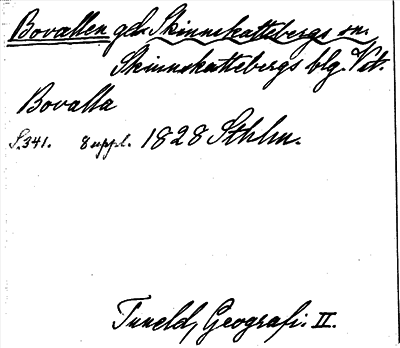 Bovallen gd. Skinnskattebergs sn.
Skinnskattebergs blg. Vstm.
Bovalla
S.341. 8 uppl. 1828 Sthlm.
Tuneld, Geografi. II.